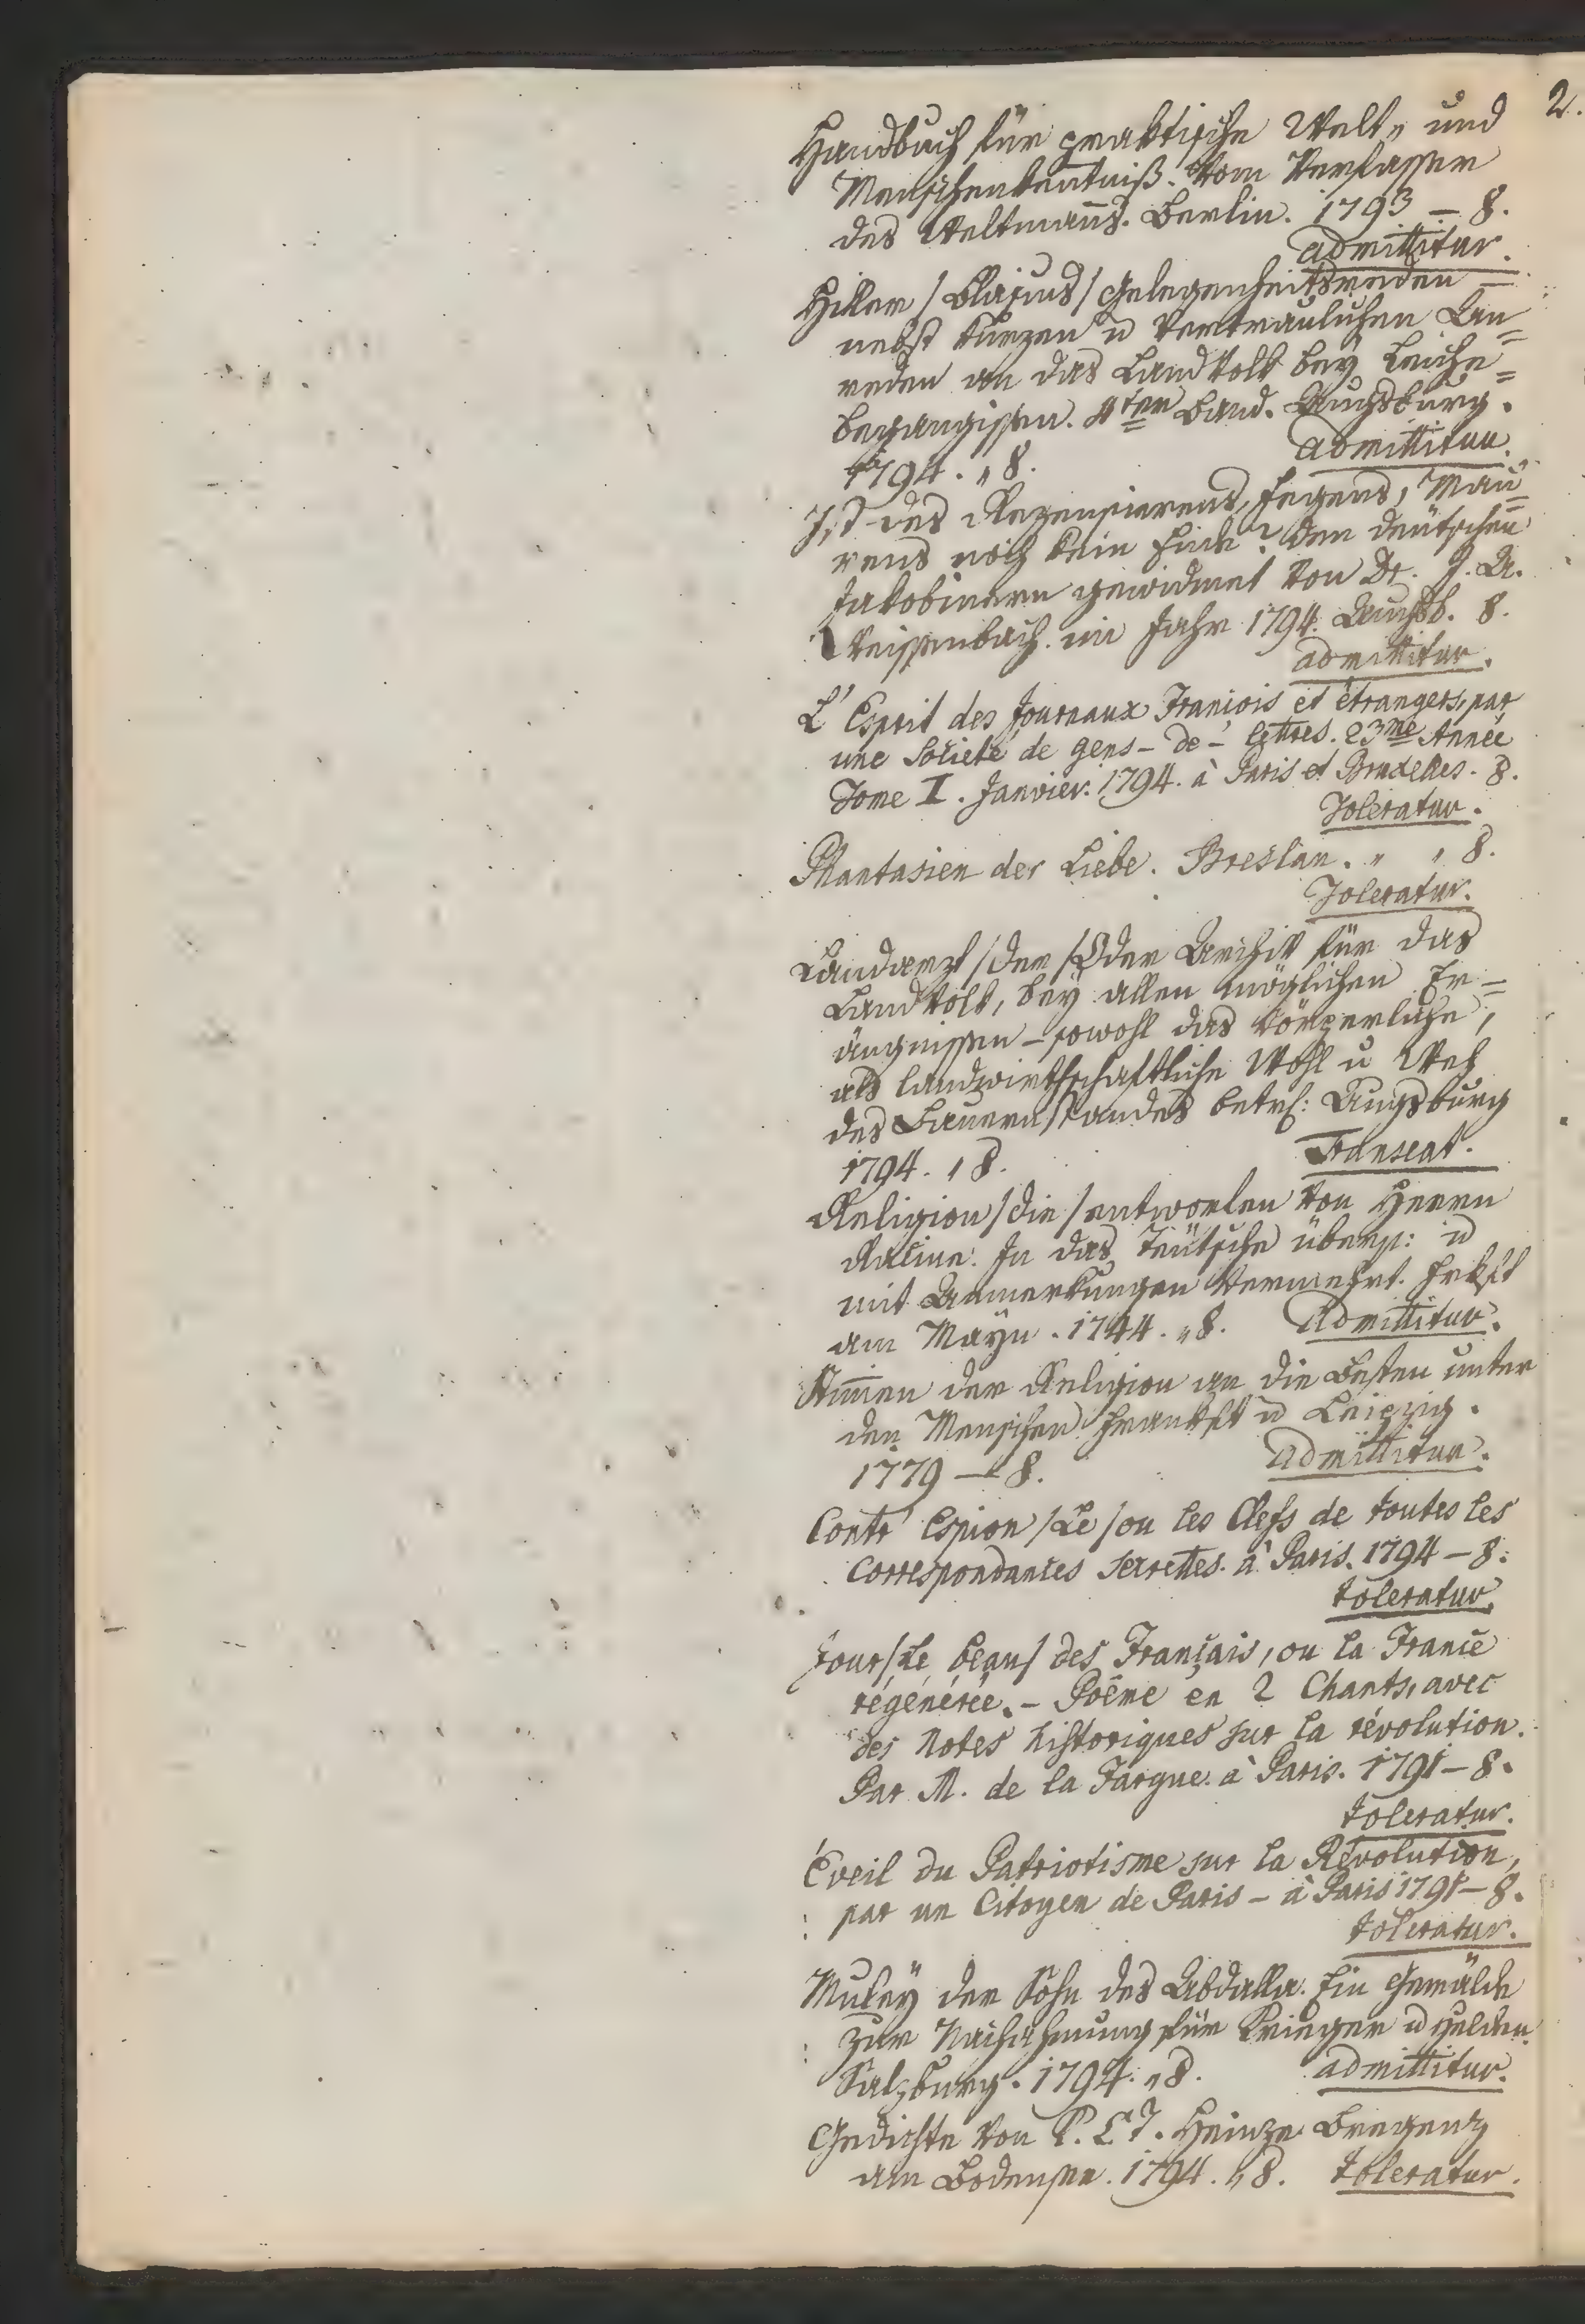 2.
Handbuch für praktische Welt- und
Menschenkentniß. Vom Verfasser
des Weltmañs. Berlin. 1793 – 8.
admittitur.
Hiller /Blasius/ Gelegenheitsreden –
nebst kurzen u vertraulichen An=
reden an das Landvolk bey Leiche=
begängissen. 4ter Band. Augsburg.
1794. „ 8. admittitur.
Ist des Rezensierens, Fegens, Mau=
rens noch kein Ende? Den deutschen
Jakobinern gewidmet von Dr. J. A.
Weissenbach. im Jahr 1794. Augsb. 8.
admittitur.
L' Esprit des Journaux Francois et étrangers, par
une Societé de gens – de – lettres. 23me Année
Tome I. Janvier. 1794. à Paris et Bruxelles. 8.
Toleratur.
Phantasien der Liebe. Breslau. „ „ 8.
Toleratur.
Landarzt /der/ Oder Archiv für das
Landvolk, bey allen möglichen Er=
ängnissen – sowohl das körperliche,
als landwirthschaftliche Wohl u Weh
des Bauernstandes betrf: Augsburg
1794. „ 8. Transeat.
Religion /die/ entworfen von Herrn
Racine. In das Teütsche übers: u
mit Anmerkungen vermehrt. Frkft
am Mayn. 1744. „ 8. Admittitur.
Stim̃en der Religion an die Besten unter
den Menschen Frankft u Leipzig.
1779 – 8. admittitur.
Contr' Espion /Le/ ou les Clefs de toutes les
Correspondances secrettes. à Paris. 1794 – 8.
toleratur.
Jour /Le beau/ des Français, ou la France
régénérée. – Poême en 2 Chants, avec
des Notes historiques sur la révolution.
Par M. de la Fargue. à Paris. 1791 – 8.
toleratur.
Éveil du Patriotisme sur la Révolution,
par un Citoyen de Paris – à Paris 1791 – 8.
toleratur.
Muleÿ der Sohn des Abdalla. Ein Gemälde
zur Nachahmung für Krieger u Helden.
Salzburg. 1794. „ 8. admittitur.
Gedichte von P. C. J. Heinze Bregenz
am Bodensee. 1794. „ 8. toleratur.